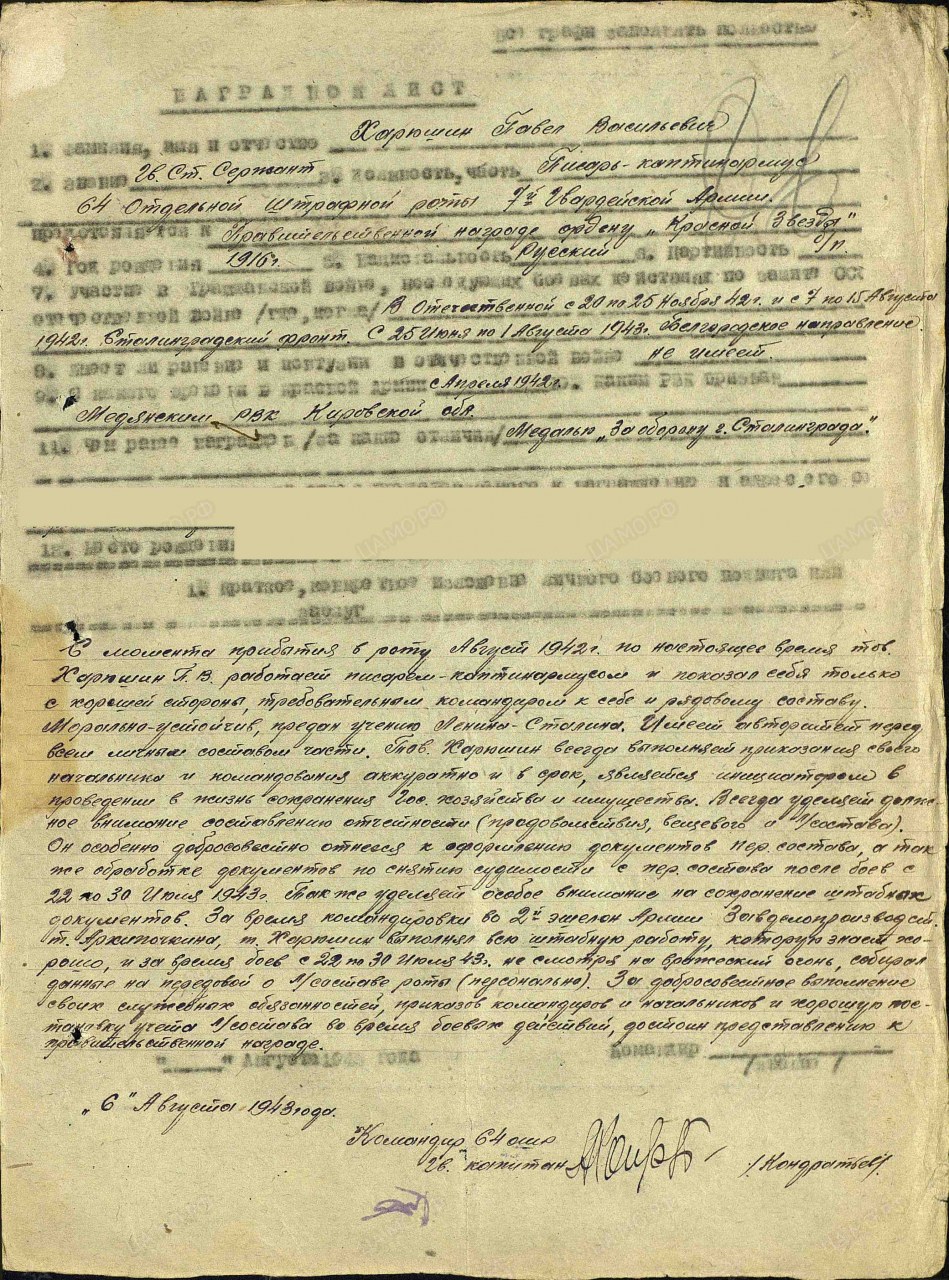 все графы заполнять полностью
НАГРАДНОЙ ЛИСТ
1. Фамилия, имя и отчество Харюшин Павел Васильевич
2. Звание Гв. Ст. Сержант 3. Должность, часть Писарь-каптинармус
64 Отдельной Штрафной роты 7й Гвардейской Армии.
представляется к Правительственной награде ордену „Красной Звезды"
4. Год рождения 1916г. 5. Национальность Русский 6. Партийность б/п.
7. Участие в Гражданской войне, последующих боевых действиях по защите СССР
отечественной войне /где, когда/ В Отечественной с 20 по 25 Ноября 42г. и с 7 по 15 Августа
1942г. Сталинградский фронт. С 25 Июня по 1 Августа 1943г. Белгородское направление.
8. Имеет ли ранения и контузии в отечественной войне не имеет.
9. С какого времени в красной армии с Апреля 1942г. 10. Каким РВК призван
Медянским РВК Кировской обл.
11. Чем ранее награжден /за какие отличия/ Медалью „За оборону г. Сталинграда".
к награждению и адрес его
12. Место рождения
1. Краткое, конкретное изложение личного боевого подвига или
заслуг
С момента прибытия в роту Август 1942г. по настоящее время тов.
Харюшин П. В. работает писарем-каптинармусом и показал себя только
с хорошей стороны, требовательным командиром к себе и рядовому составу.
Морально-устойчив, предан учению Ленина-Сталина. Имеет авторитет перед
всем личным составом части. Тов. Харюшин всегда выполняет приказания своего
начальника и командования аккуратно и в срок, является инициатором в
проведении в жизнь сохранения Гос. хозяйства и имущества. Всегда уделяет долж-
ное внимание составлению отчетности (продовольствия, вещевого и Ч/состава).
Он особенно добросовестно отнесся к оформлению документов пер. состава, а так
же обработке документов по снятию судимости с пер. состава после боев с
22 по 30 Июля 1943г. Так же уделяет особое внимание на сохранение штабных
документов. За время командировки во 2й эшелон Армии Завделопроизводст.
т. Архипочкина, т. Харюшин выполнял всю штабную работу, которую знает хо-
рошо, и за время боев с 22 по 30 Июля 43г. не смотря на вражеский огонь, собирал
данные на передовой о Ч/составе роты (персонально). За добросовестное выполнение
своих служебных обязанностей, приказов командиров и начальников и хорошую пос-
тановку учета Ч/состава во время боевых действий, достоин представлению к
правительственной награде.
"____" Августа 194 года Командир
„6" Августа 1943 года.
Командир 64 ошр
Гв. капитан /Кондратьев/.
ЦАМО.РФ
ЦАМО.РФ
ЦАМО.РФ